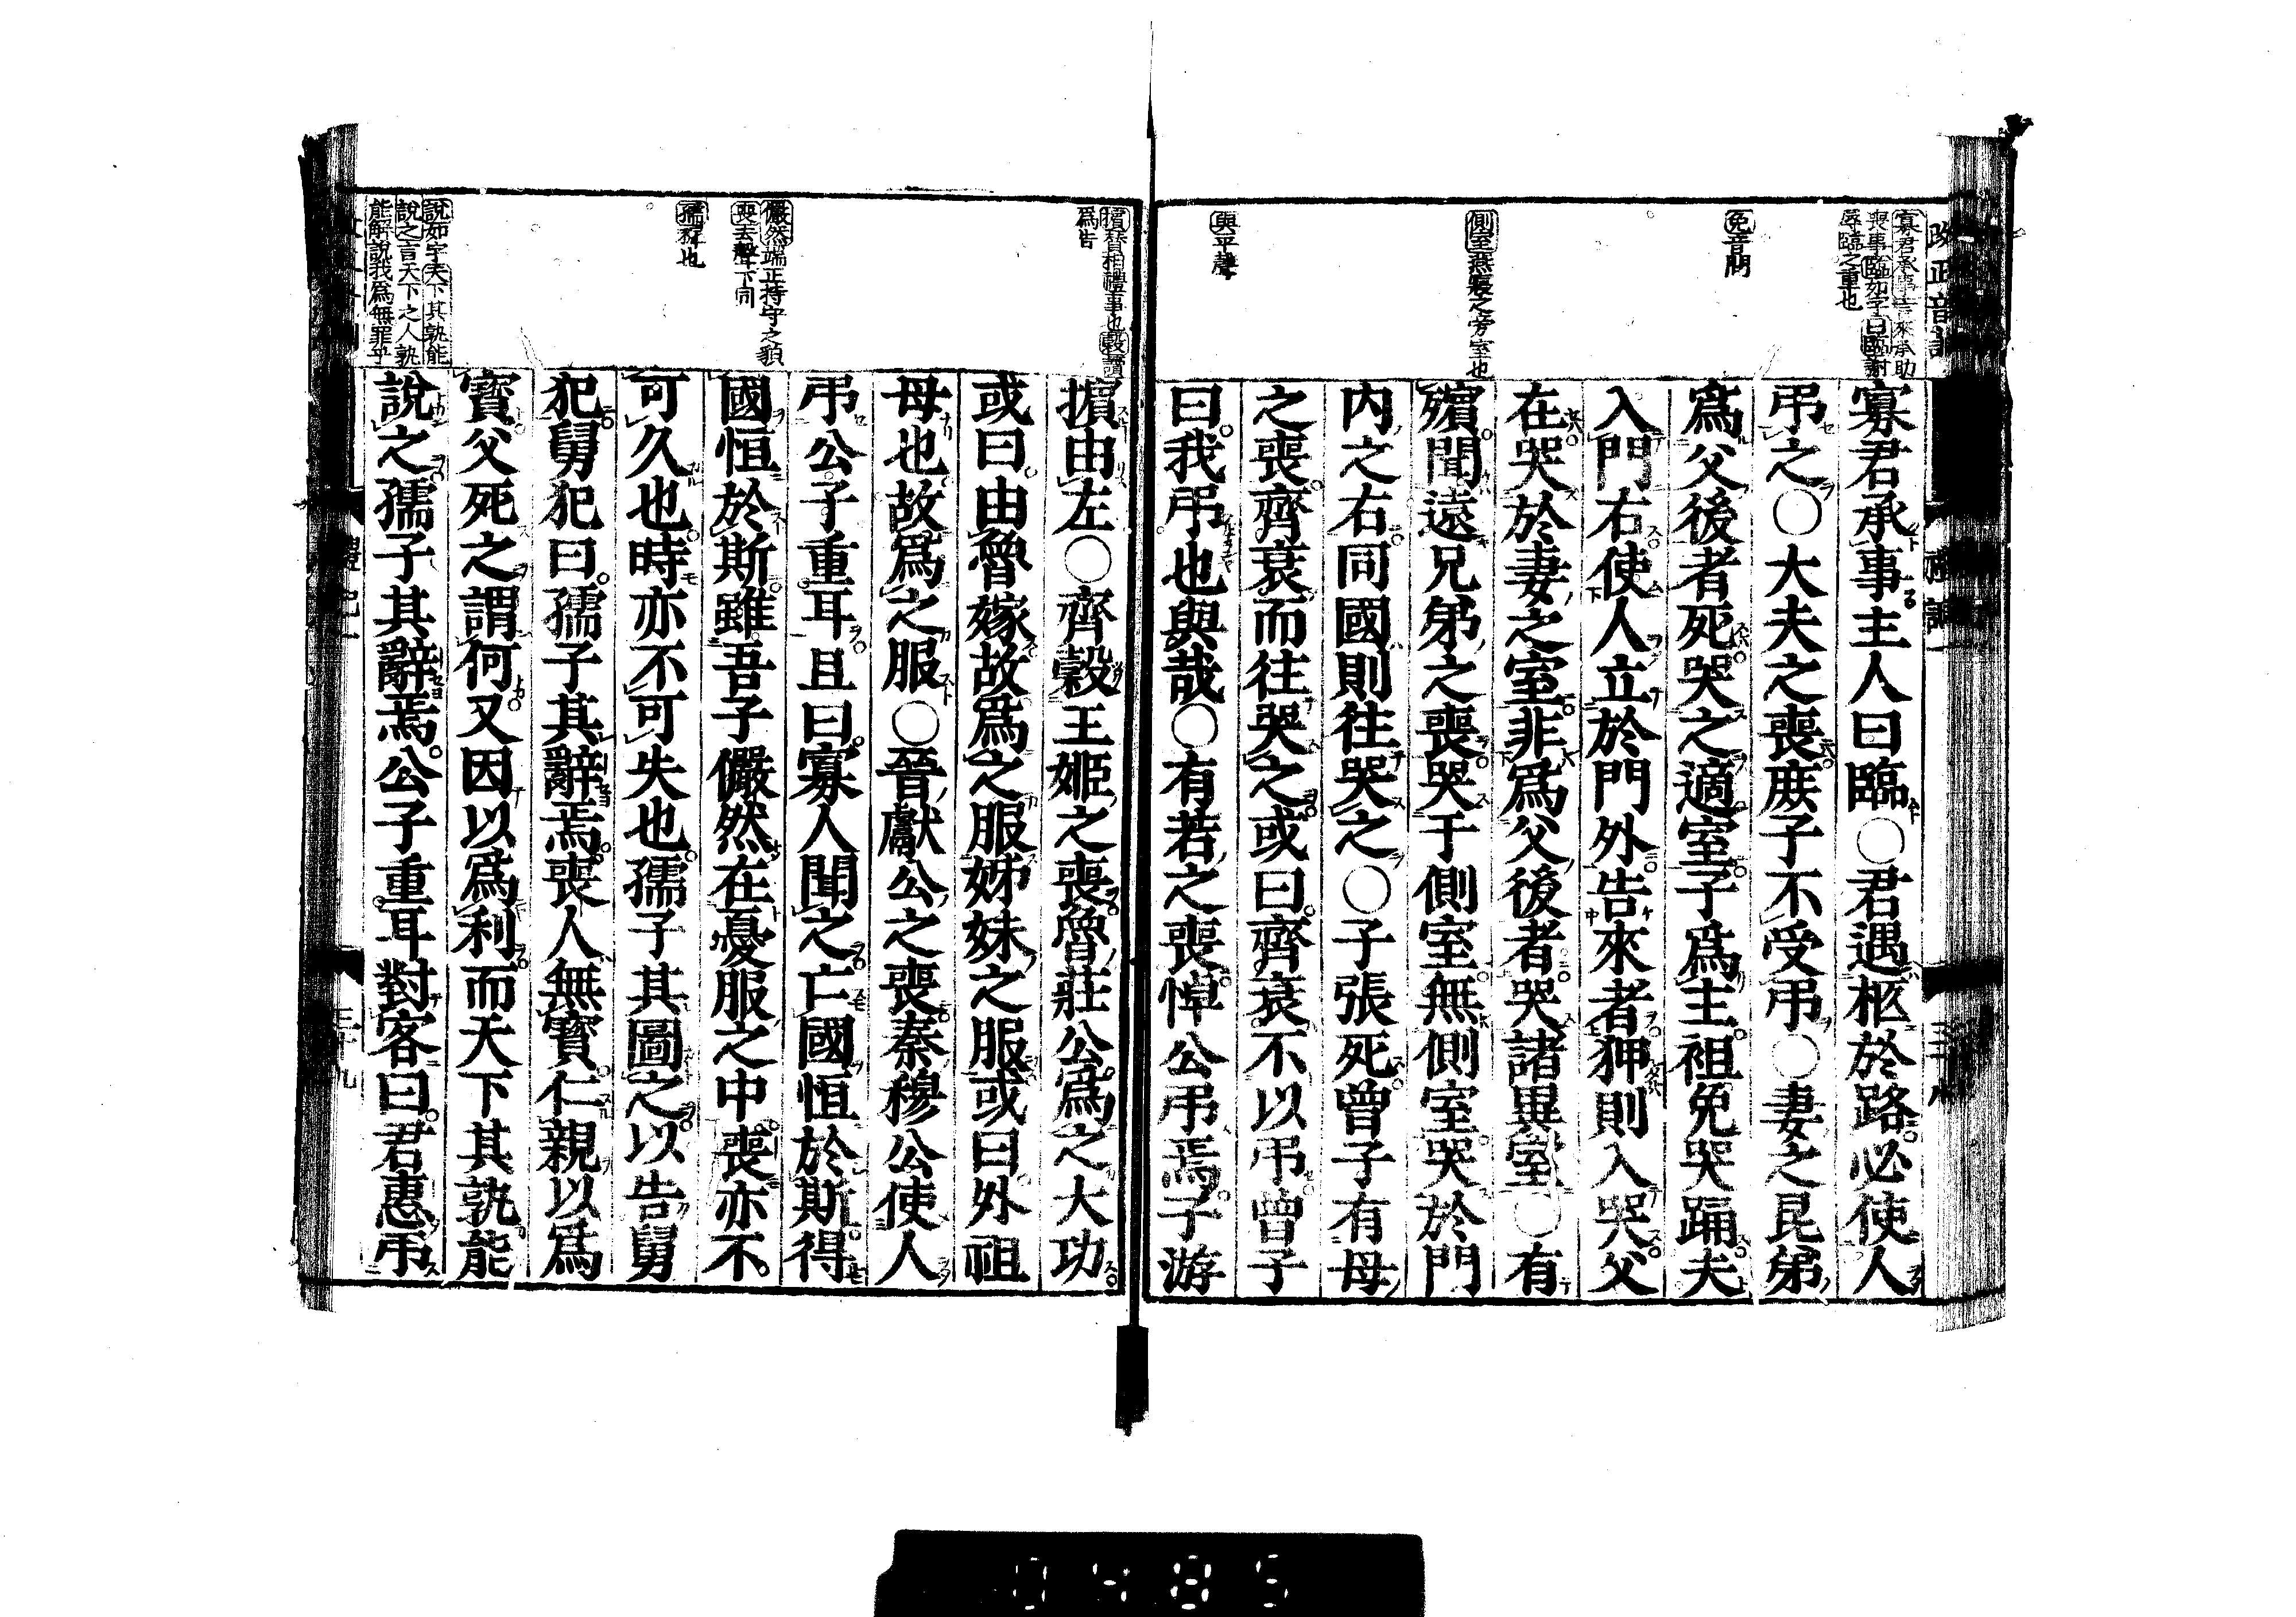 寡君承事。主人曰臨○君遇柩於路必使人
弔之○大夫之喪庶子不受弔○妻之昆弟
爲父後者死哭之適室子爲主袒免哭踊夫
入門右使人立於門外告來者狎則入哭父
在哭於妻之室非爲父後者哭諸異室○有
殯聞遠兄弟之喪哭于側室無側室哭於門
内之右同國則往哭之○子張死曾子有母
之喪齊衰而往哭之或曰齊衰不以弔曾子
曰我弔也與哉○有若之喪悼公弔焉子游
擯由左○齊穀王姬之喪魯莊公爲之大功
或曰由魯嫁故爲之服姊妹之服或曰外祖
母也故爲之服○晉獻公之喪秦穆公使人
弔公子重耳且曰寡人聞之亡國恒於斯得
國恒於斯雖吾子儼然在憂服之中喪亦不
可久也時亦不可失也孺子其圖之以告舅
犯舅犯曰孺子其辭焉喪人無寶仁親以爲
寶父死之謂何又因以爲利而天下其孰能
說之孺子其辭焉公子重耳對客曰君惠弔
免音問
側室燕寢之旁室也
與平聲
擯替相禮事也穀讀
爲告
儼然端正持守之貌
喪去聲下同
孺稺也
說如字天下其孰能
說之言天下之人孰
能解說我爲無罪乎